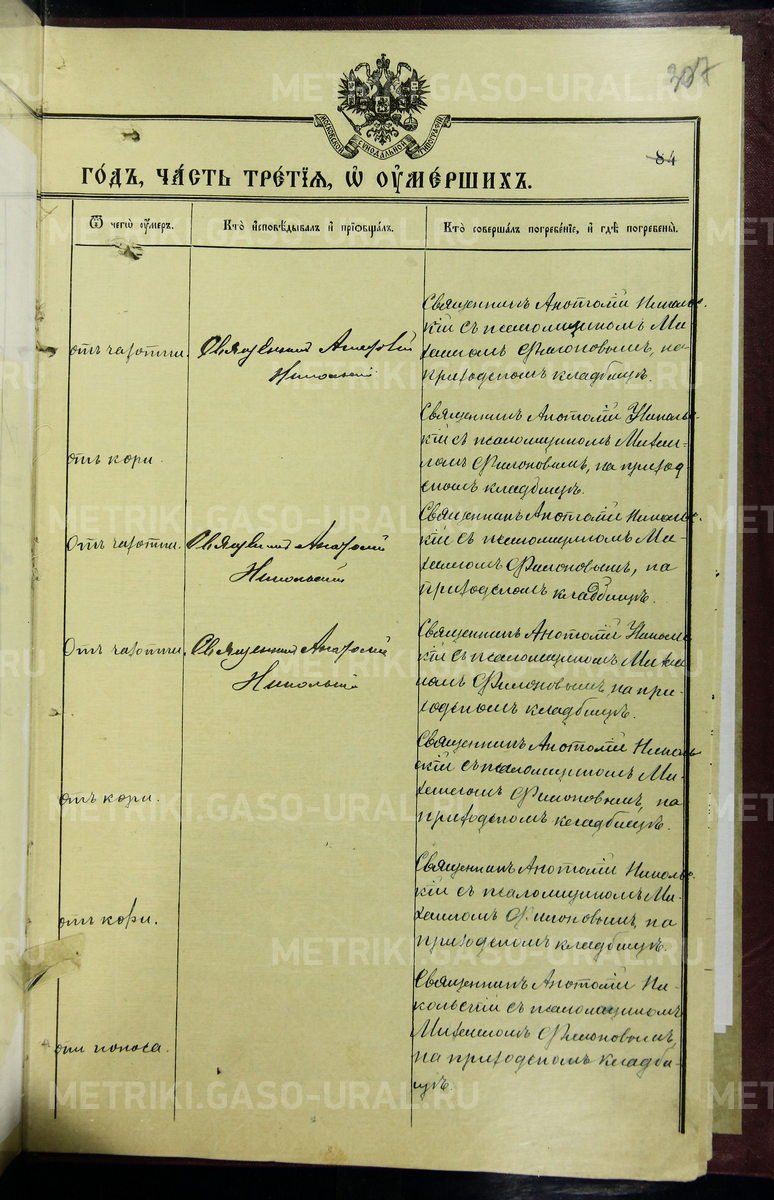 307
МОСКОВСКОЙ СѴНОДАЛЬНОЙ ТИПОГРАФІИ
84
ГО́ДЪ, ЧА́СТЬ ТРЕ́ТІѦ, Ѡ҆ ОУ҆МЕ́РШИХЪ.
Ѿ чегѡ̀ оу҆́меръ.
Кто̀ и҆сповѣ́дывалъ и҆ прїѡбща́лъ.
Кто̀ соверша́лъ погребе́нїе, и҆ гдѣ̀ погребены̀.
отъ чахотки.
Священникъ Анатолій
Никольскій
Священникъ Анатолій Николь-
скій съ псаломщикомъ Ми-
хаиломъ Филоновымъ, на
приходскомъ кладбищѣ.
отъ кори.
Священникъ Анатолій Николь-
скій съ псаломщикомъ Михаи-
ломъ Филоновымъ, на приход-
скомъ кладбищѣ.
Отъ чахотки.
Священникъ Анатолій
Никольскій
Священникъ Анатолій Николь-
скій съ псаломщикомъ Ми-
хаиломъ Филоновымъ, на
приходскомъ кладбищѣ.
Отъ чахотки.
Священникъ Анатолій
Никольскій
Священникъ Анатолій Николь-
скій съ псаломщикомъ Михаи-
ломъ Филоновымъ, на при-
ходскомъ кладбищѣ.
отъ кори.
Священникъ Анатолій Николь-
скій съ псаломщикомъ Ми-
хаиломъ Филоновымъ, на
приходскомъ кладбищѣ.
отъ кори.
Священникъ Анатолій Николь-
скій съ псаломщикомъ Ми-
хаиломъ Филоновымъ, на
приходскомъ кладбищѣ.
отъ поноса.
Священникъ Анатолій Ни-
кольскій съ псаломщикомъ
Михаиломъ Филоновымъ,
на приходскомъ кладби-
щѣ.
METRIKI.GASO-URAL.RU
METRIKI.GASO-URAL.RU
METRIKI.GASO-URAL.RU
METRIKI.GASO-URAL.RU
METRIKI.GASO-URAL.RU
METRIKI.GASO-URAL.RU
METRIKI.GASO-URAL.RU